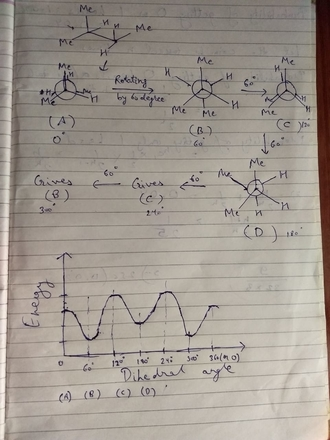 Me
H
Me
H
Me
H
H
Me H
H
H
Me
H
(A)
0°
Rotating
by 60 degree
Me
H
H
Me
Me
(B)
60°
60°
H
H
(C) 120°
60°
Me
Me
H
Me
H
(D) 180°
60°
Gives
(C)
240°
60°
Gives
(B)
300°
Energy
0 60° 120° 180° 240° 300° 360(or, 0)
Dihedral angle
(A) (B) (C) (D)